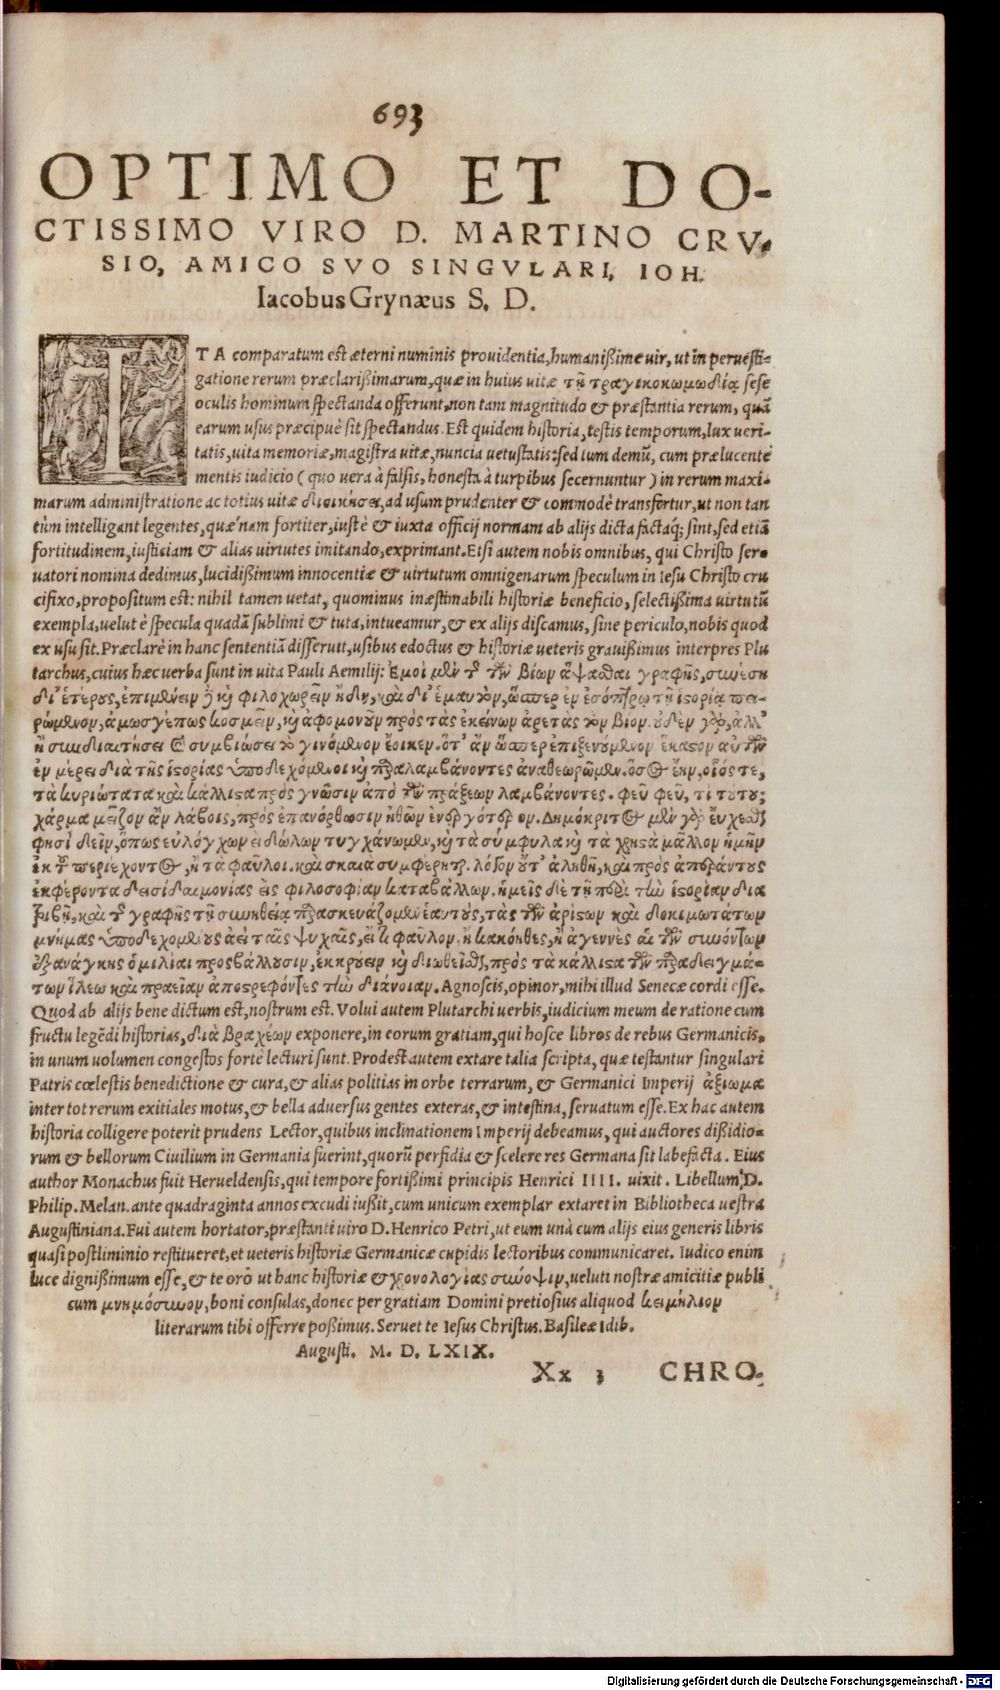 693
OPTIMO ET DO-
CTISSIMO VIRO D. MARTINO CRV-
SIO, AMICO SVO SINGVLARI, IOH.
Iacobus Grynæus S. D.
ITA comparatum est æterni numinis providentia, humanißime vir, ut in pervesti-
gatione rerum præclarißimarum, quæ in huius vitæ τῇ τραγικοκωμωδίᾳ sese
oculis hominum spectanda offerunt, non tam magnitudo & præstantia rerum, quã
earum usus præcipuè sit spectandus. Est quidem historia, testis temporum, lux veri-
tatis, vita memoriæ, magistra vitæ, nuncia vetustatis: sed tum demũ, cum prælucente
mentis iudicio (quo vera à falsis, honesta à turpibus secernuntur) in rerum maxi-
marum administratione ac totius vitæ διοικήσει, ad usum prudenter & commodè transfertur, ut non tan
tùm intelligant legentes, quænam fortiter, iustè & iuxta officij normam ab alijs dicta factaq; sint, sed etiã
fortitudinem, iusticiam & alias virtutes imitando, exprimant. Etsi autem nobis omnibus, qui Christo ser-
vatori nomina dedimus, lucidißimum innocentiæ & virtutum omnigenarum speculum in Iesu Christo cru
cifixo, propositum est: nihil tamen vetat, quominus inæstimabili historiæ beneficio, selectißima virtutũ
exempla, velut è specula quadã sublimi & tuta, intueamur, & ex alijs discamus, sine periculo, nobis quod
ex usu sit. Præclarè in hanc sententiã disseruit, usibus edoctus & historiæ veteris gravißimus interpres Plu
tarchus, cuius hæc verba sunt in vita Pauli Aemilij: Ἐμοὶ μὲν τ τῶν βίων ἅψασθαι γραφῆς, συνέβη
δι' ἑτέρους, ἐπιμένειν ἢ καὶ φιλοχωρεῖν ἤδη, καὶ δι' ἐμαυτὸν, ὥσπερ ἐν ἐσόπτρῳ τῇ ἱστορίᾳ πει-
ρώμενον, ἁμωσγέπως κοσμεῖν, καὶ ἀφομοιοῦν πρὸς τὰς ἐκείνων ἀρετὰς τὸν βίον. οὐδὲν γὰρ, ἀλλ'
ἢ συνδιαιτήσει καὶ συμβιώσει τὸ γινόμενον ἔοικεν. ὅτ' ἂν ὥσπερ ἐπιξενούμενον ἕκαστον αὐτῶν
ἐν μέρει διὰ τῆς ἱστορίας ὑποδεχόμενοι καὶ παραλαμβάνοντες ἀναθεωρῶμεν. ὅσος ἔην, οἷός τε,
τὰ κυριώτατα καὶ κάλλιστα πρὸς γνῶσιν ἀπὸ τῶν πράξεων λαμβάνοντες. φεῦ φεῦ, τί τούτου;
χάρμα μεῖζον ἂν λάβοις, πρὸς ἐπανόρθωσιν ἠθῶν ἐνεργότερον. Δημόκριτος μὲν γὰρ εὔχεσθαι
φησὶ δεῖν, ὅπως εὐλόγχων εἰδώλων τυγχάνωμεν, καὶ τὰ σύμφυλα καὶ τὰ χρηστὰ μᾶλλον ἡμῖν
ἐκ τ περιέχοντος, ἢ τὰ φαῦλα καὶ σκαιὰ συμφέρηται. λόγον οὔτ' ἀληθῆ, καὶ πρὸς ἀπεράντους
ἐκφέροντα δεισιδαιμονίας εἰς φιλοσοφίαν καταβάλλων. ἡμεῖς δὲ τῇ περὶ τὴν ἱστορίαν δια
τριβῇ, καὶ τ γραφῆς τῇ συνηθείᾳ παρασκευάζομεν ἑαυτοὺς, τὰς τῶν ἀρίστων καὶ δοκιμωτάτων
μνήμας ὑποδεχομένους ἀεὶ ταῖς ψυχαῖς, εἴ τι φαῦλον, ἢ κακόηθες, ἢ ἀγεννὲς αἱ τῶν συνόντων
ἐξ ἀνάγκης ὁμιλίαι προσβάλλουσιν, ἐκκρούειν καὶ διωθεῖσθαι, πρὸς τὰ κάλλιστα τῶν παραδειγμά-
των ἵλεω καὶ πραεῖαν ἀποστρέφοντες τὴν διάνοιαν. Agnoscis, opinor, mihi illud Senecæ cordi esse.
Quod ab alijs bene dictum est, nostrum est. Volui autem Plutarchi verbis, iudicium meum de ratione cum
fructu legẽdi historias, διὰ βραχέων exponere, in eorum gratiam, qui hosce libros de rebus Germanicis,
in unum volumen congestos fortè lecturi sunt. Prodest autem extare talia scripta, quæ testantur singulari
Patris cœlestis benedictione & cura, & alias politias in orbe terrarum, & Germanici Imperij ἀξίωμα
inter tot rerum exitiales motus, & bella adversus gentes exteras, & intestina, servatum esse. Ex hac autem
historia colligere poterit prudens Lector, quibus inclinationem Imperij debeamus, qui auctores dißidio-
rum & bellorum Civilium in Germania fuerint, quorũ perfidia & scelere res Germana sit labefacta. Eius
author Monachus fuit Herveldensis, qui tempore fortißimi principis Henrici IIII. vixit. Libellum D.
Philip. Melan. ante quadraginta annos excudi iußit, cum unicum exemplar extaret in Bibliotheca vestra
Augustiniana. Fui autem hortator, præstanti viro D. Henrico Petri, ut eum unà cum alijs eius generis libris
quasi postliminio restitueret, et veteris historiæ Germanicæ cupidis lectoribus communicaret. Iudico enim
luce dignißimum esse, & te oro ut hanc historiæ & χρονολογίας σύνοψιν, veluti nostræ amicitiæ publi
cum μνημόσυνον, boni consulas, donec per gratiam Domini pretiosius aliquod κειμήλιον
literarum tibi offerre poßimus. Servet te Iesus Christus. Basileæ Idib.
Augusti. M. D. LXIX.
Xx 3 CHRO-
Digitalisierung gefördert durch die Deutsche Forschungsgemeinschaft - DFG